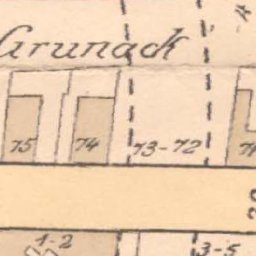 Grunack
75 74 73-72
1-2 3-5